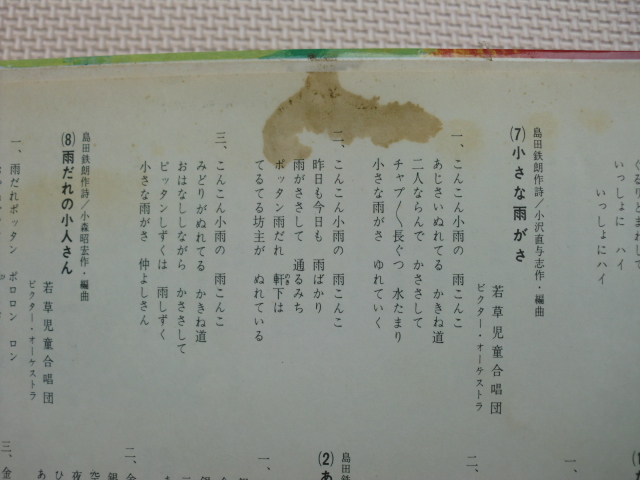 いっしょに　ハイ
いっしょにハイ
(7)小さな雨がさ
島田鉄朗作詩/小沢直与志作・編曲
若草児童合唱団
ビクター・オーケストラ
一、こんこん小雨の　雨こんこ
あじさいぬれてる　かきね道
二人ならんで　かささして
チャプ〳〵長ぐつ　水たまり
小さな雨がさ　ゆれていく
二、こんこん小雨の　雨こんこ
昨日も今日も　雨ばかり
雨がささして　通るみち
ポッタン雨だれ　軒下は
のき
てるてる坊主が　ぬれている
三、こんこん小雨の　雨こんこ
みどりがぬれてる　かきね道
おはなししながら　かささして
ピッタンしずくは　雨しずく
小さな雨がさ　仲よしさん
(8)雨だれの小人さん
島田鉄朗作詩/小森昭宏作・編曲
若草児童合唱団
ビクター・オーケストラ
一、雨だれポッタン　ポロロン　ロン
一、
二、
島田鉄
(2)あ
一、
二、金
三、金